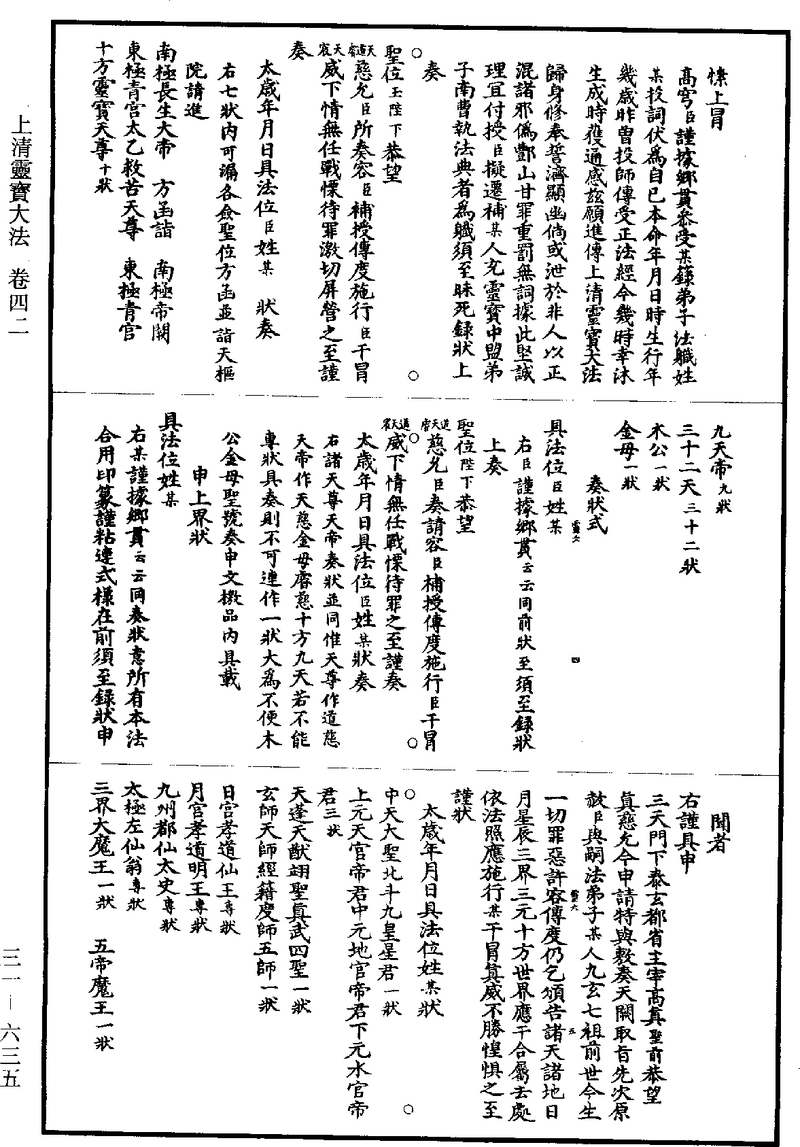 上清靈寶大法 卷四二
三一－六三五
愫上冒
高穹臣謹據鄉貫叅受某籙弟子法職姓
某投詞伏為自已本命年月日時生行年
幾歲昨曾投師傳受正法經今幾時幸沐
生成時獲通感兹願進傳上清靈寶大法
歸身修奉誓濟顯幽倘或泄於非人以正
混諸邪偽酆山甘罪重罰無詞據此堅誠
理宜付授臣擬遷補某人充靈寶中盟弟
子南曹執法典者為職須至昧死錄狀上
奏
聖位玉陛下恭望
道天慈允臣所奏容臣補授傳度施行臣干冒
天宸威下情無任戰慄待罪激切屏營之至謹
奏
太歲年月日具法位臣姓某 狀奏
右七狀內可漏各僉聖位方函並詣天樞
院請進
南極長生大帝 方函詣 南極帝闕
東極青宮太乙救苦天尊 東極青宮
十方靈寶天尊十狀
九天帝九狀
三十二天三十二狀
木公一狀
金母一狀
奏狀式
具法位臣姓某
右臣謹據鄉貫云云同前狀至須至錄狀
上奏
聖位陛下恭望
道天慈允臣奏請容臣補授傳度施行臣干冒
道天威下情無任戰慄待罪之至謹奏
太歲年月日具法位臣姓某狀奏
右諸天尊天帝奏狀並同惟天尊作道慈
天帝作天慈金母睿慈十方九天若不能
專狀具奏則不可連作一狀大為不便木
公金母聖號奏申文檄品內具載
申上界狀
具法位姓某
右某謹據鄉貫云云同奏狀意所有本法
合用印篆謹粘連式樣在前須至錄狀申
聞者
右謹具申
三天門下泰玄都省主宰高真聖前恭望
真慈允今申請特與敷奏天闕取旨先次原
赦臣與嗣法弟子某人九玄七祖前世今生
一切罪惡許容傳度仍乞頒告諸天諸地日
月星辰三界三元十方世界應干合屬去處
依法照應施行某干冒真威不勝惶懼之至
謹狀
太歲年月日具法位姓某狀
中天大聖北斗九皇星君一狀
上元天官帝君中元地官帝君下元水官帝
君三狀
天蓬天猷翊聖真武四聖一狀
玄師天師經籍度師五師一狀
日宮孝道仙王專狀
月宮孝道明王專狀
九州都仙太史專狀
太極左仙翁專狀
三界大魔王一狀 五帝魔王一狀